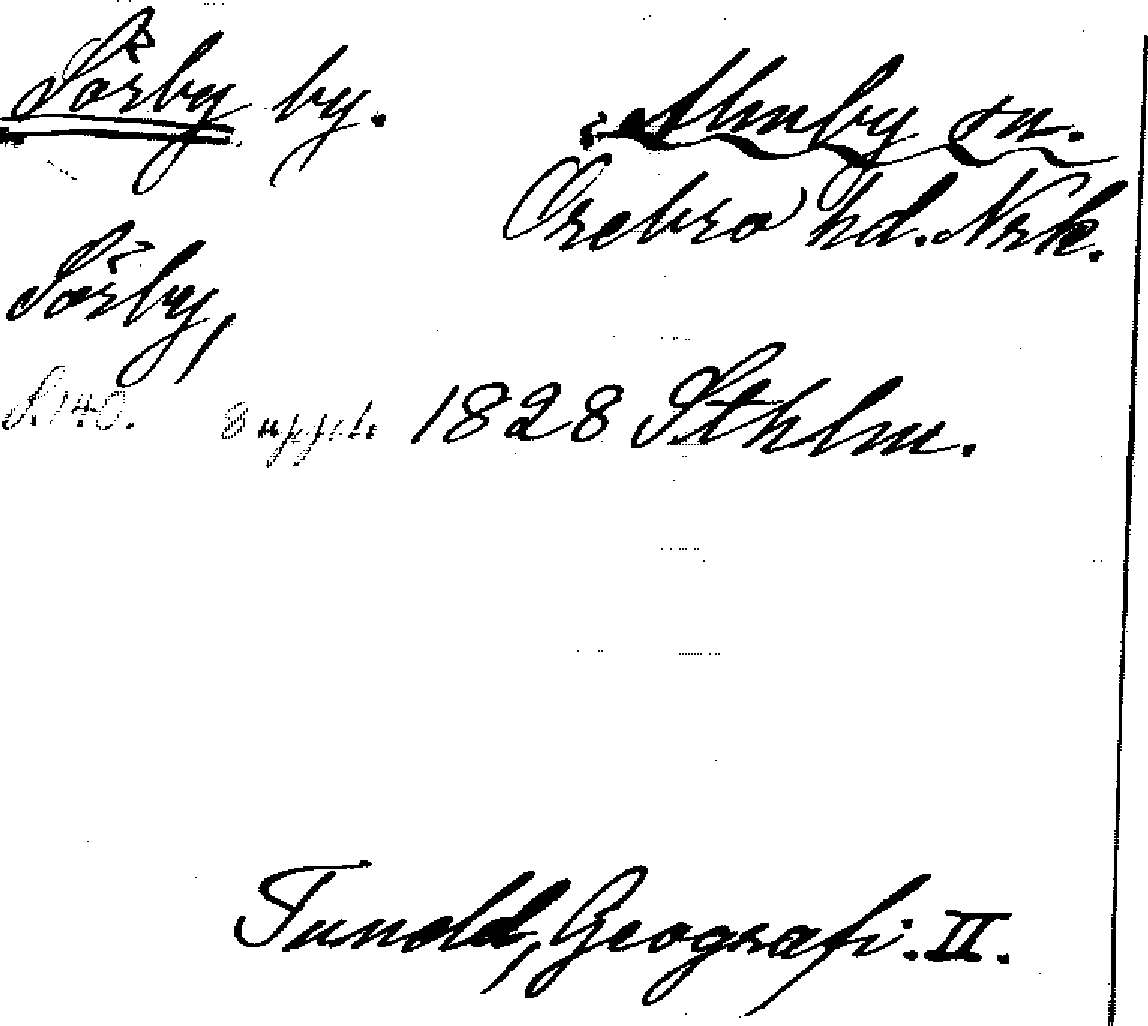 Sörby by.
Almby sn.
Örebro hd. Nrk.
Sörby,
S. 140. 8 uppl. 1828 Sthlm.
Tuneld, Geografi. II.